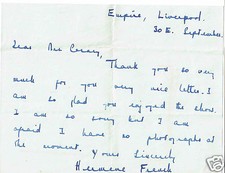 Empire, Liverpool.
30 E. September
Dear Mr
Thank you so very
much for you very nice letter. I
am so glad you enjoyed the show.
I am so sorry but I am
afraid I have no photographs at
the moment. Yours Sincerely
Hermene French